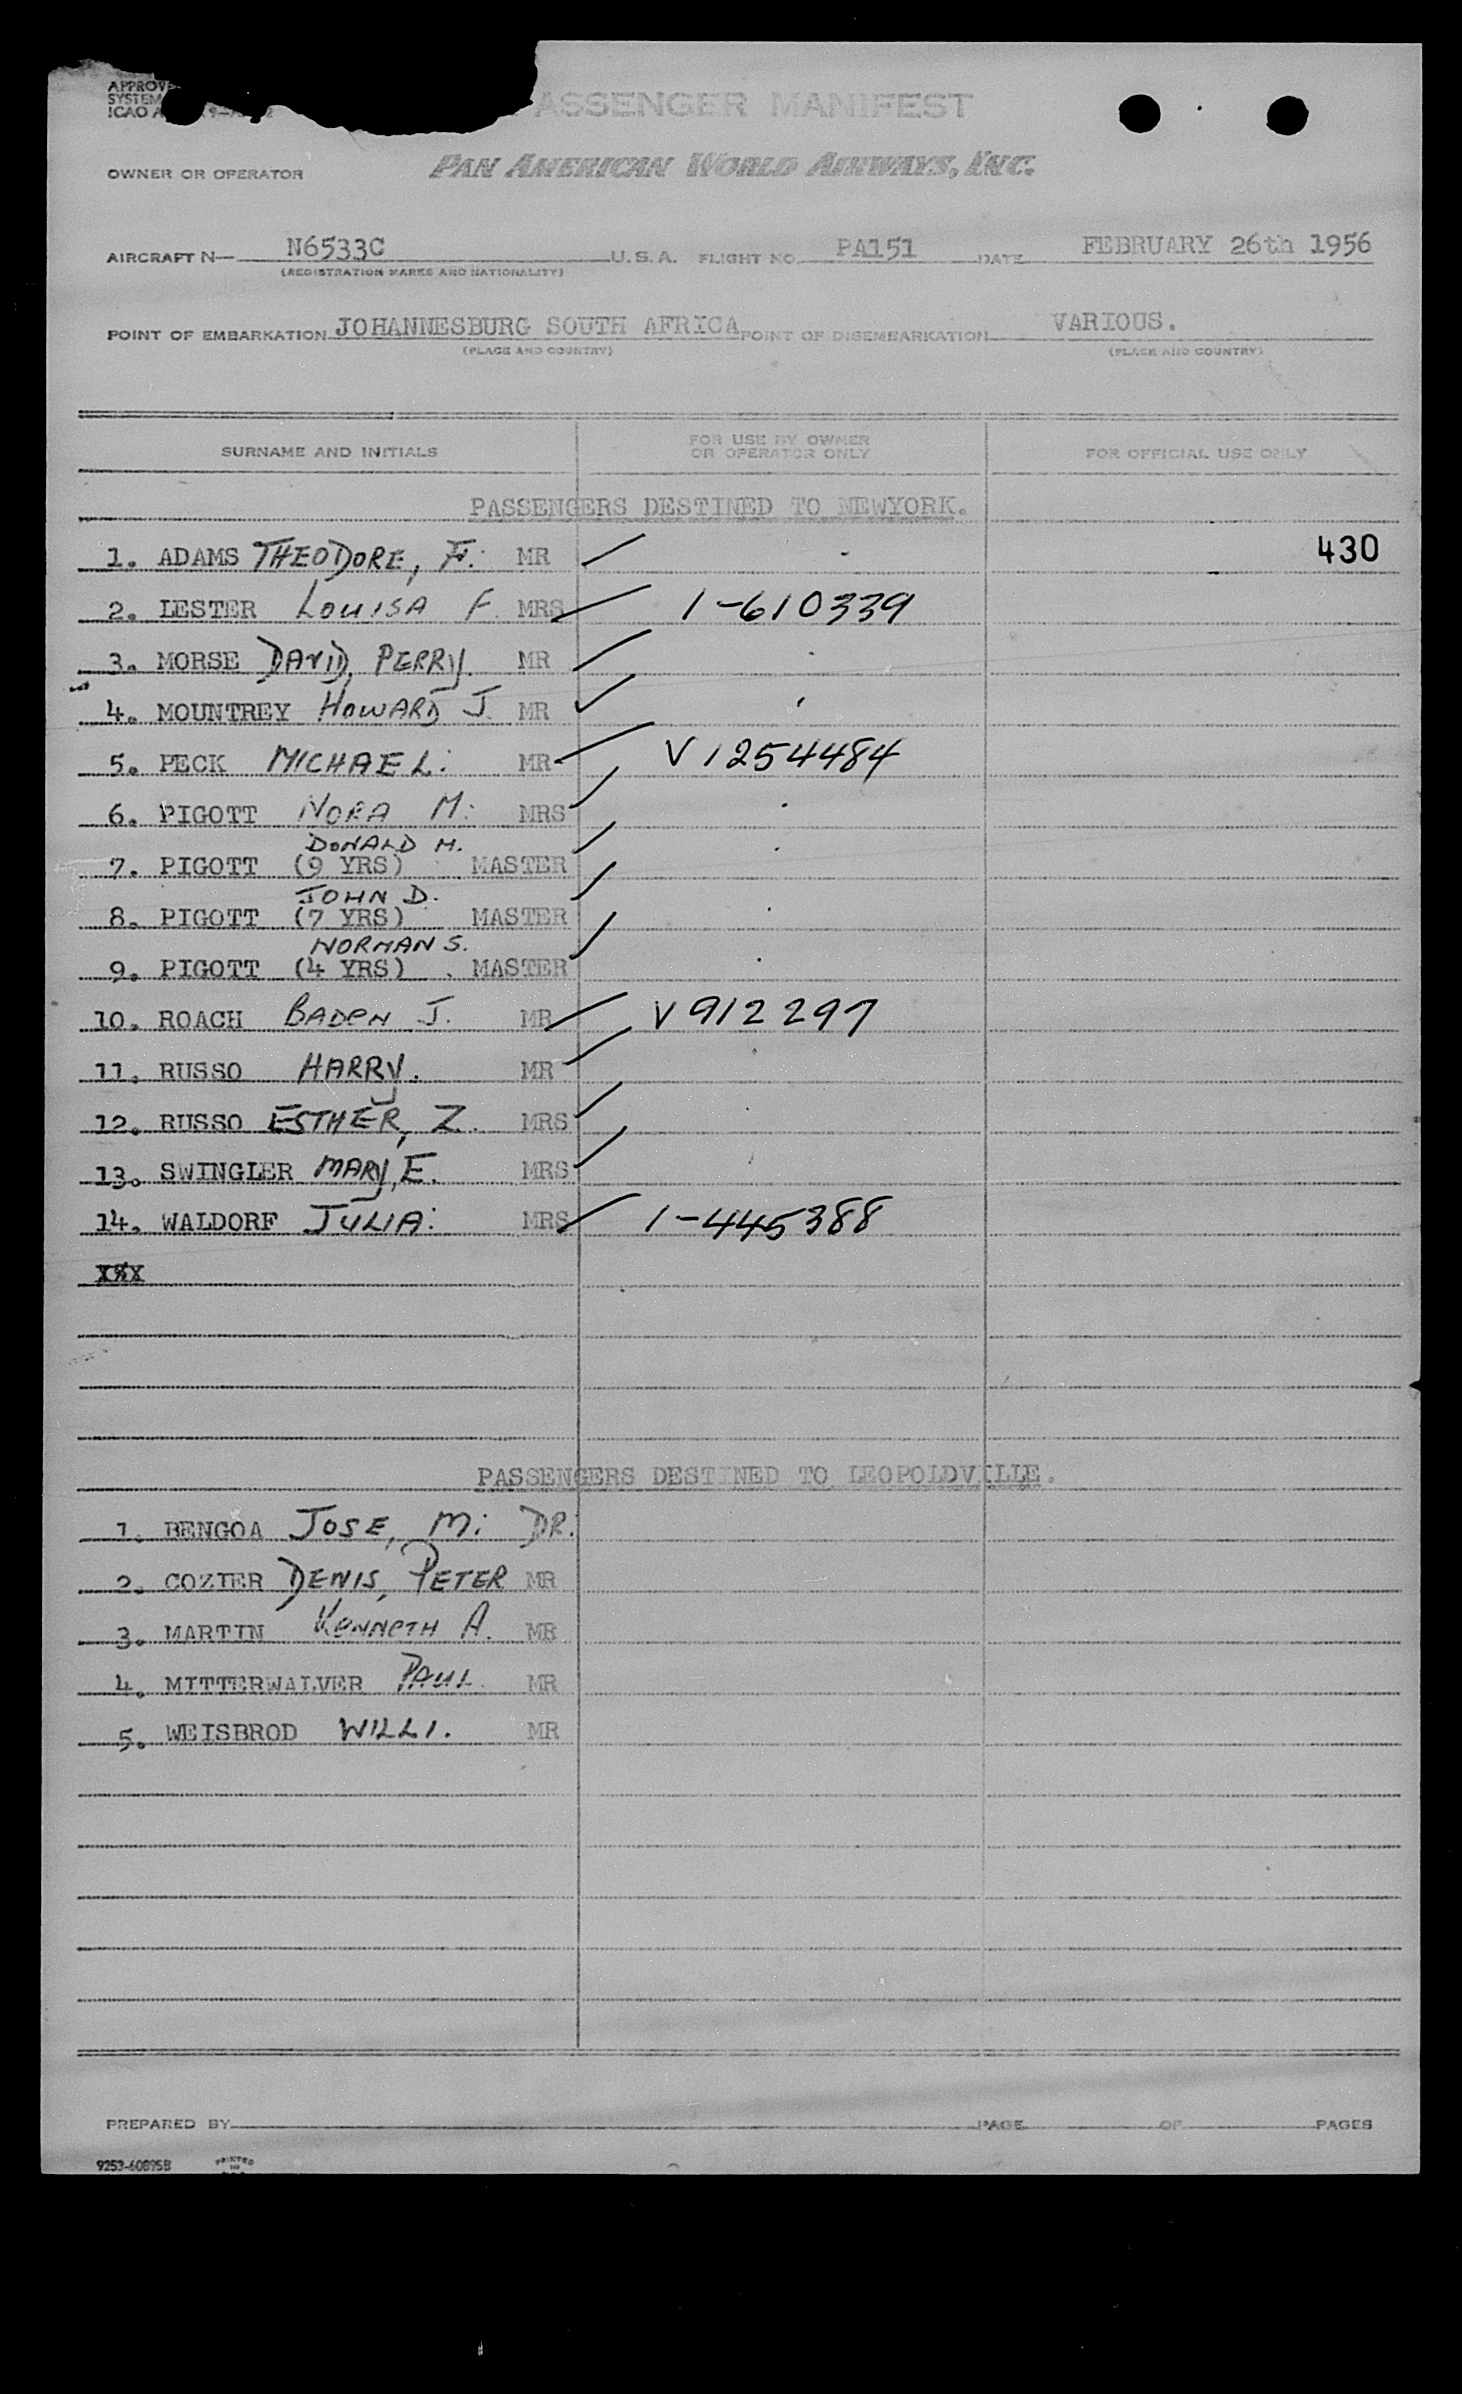 APPROV
SYSTEM
ICAO A
ASSENGER MANIFEST
OWNER OR OPERATOR PAN AMERICAN WORLD AIRWAYS, INC.
AIRCRAFT N— N6533C U.S.A. FLIGHT NO. PA151 DATE FEBRUARY 26th 1956
(REGISTRATION MARKS AND NATIONALITY)
POINT OF EMBARKATION JOHANNESBURG SOUTH AFRICA POINT OF DISEMBARKATION VARIOUS.
(PLACE AND COUNTRY) (PLACE AND COUNTRY)
SURNAME AND INITIALS FOR USE BY OWNER OR OPERATOR ONLY FOR OFFICIAL USE ONLY
PASSENGERS DESTINED TO NEWYORK.
1. ADAMS THEODORE, F. MR 430
2. LESTER LOUISA F. MRS 1-610339
3. MORSE DAVID, PERRY. MR
4. MOUNTREY HOWARD J. MR
5. PECK MICHAEL. MR V1254484
6. PIGOTT NORA M. MRS
DONALD H.
7. PIGOTT (9 YRS) MASTER
JOHN D.
8. PIGOTT (7 YRS) MASTER
NORMAN S.
9. PIGOTT (4 YRS) MASTER
10. ROACH BADEN J. MR V912297
11. RUSSO HARRY. MR
12. RUSSO ESTHER, Z. MRS
13. SWINGLER MARY, E. MRS
14. WALDORF JULIA: MRS 1-445388
PASSENGERS DESTINED TO LEOPOLDVILLE.
1. BENGOA JOSE, M: DR.
2. COZIER DENIS, PETER MR
3. MARTIN KENNETH A. MR
4. MITTERWALVER PAUL MR
5. WEISBROD WILLI. MR
PREPARED BY PAGE OF PAGES
9253-60895B PRINTED